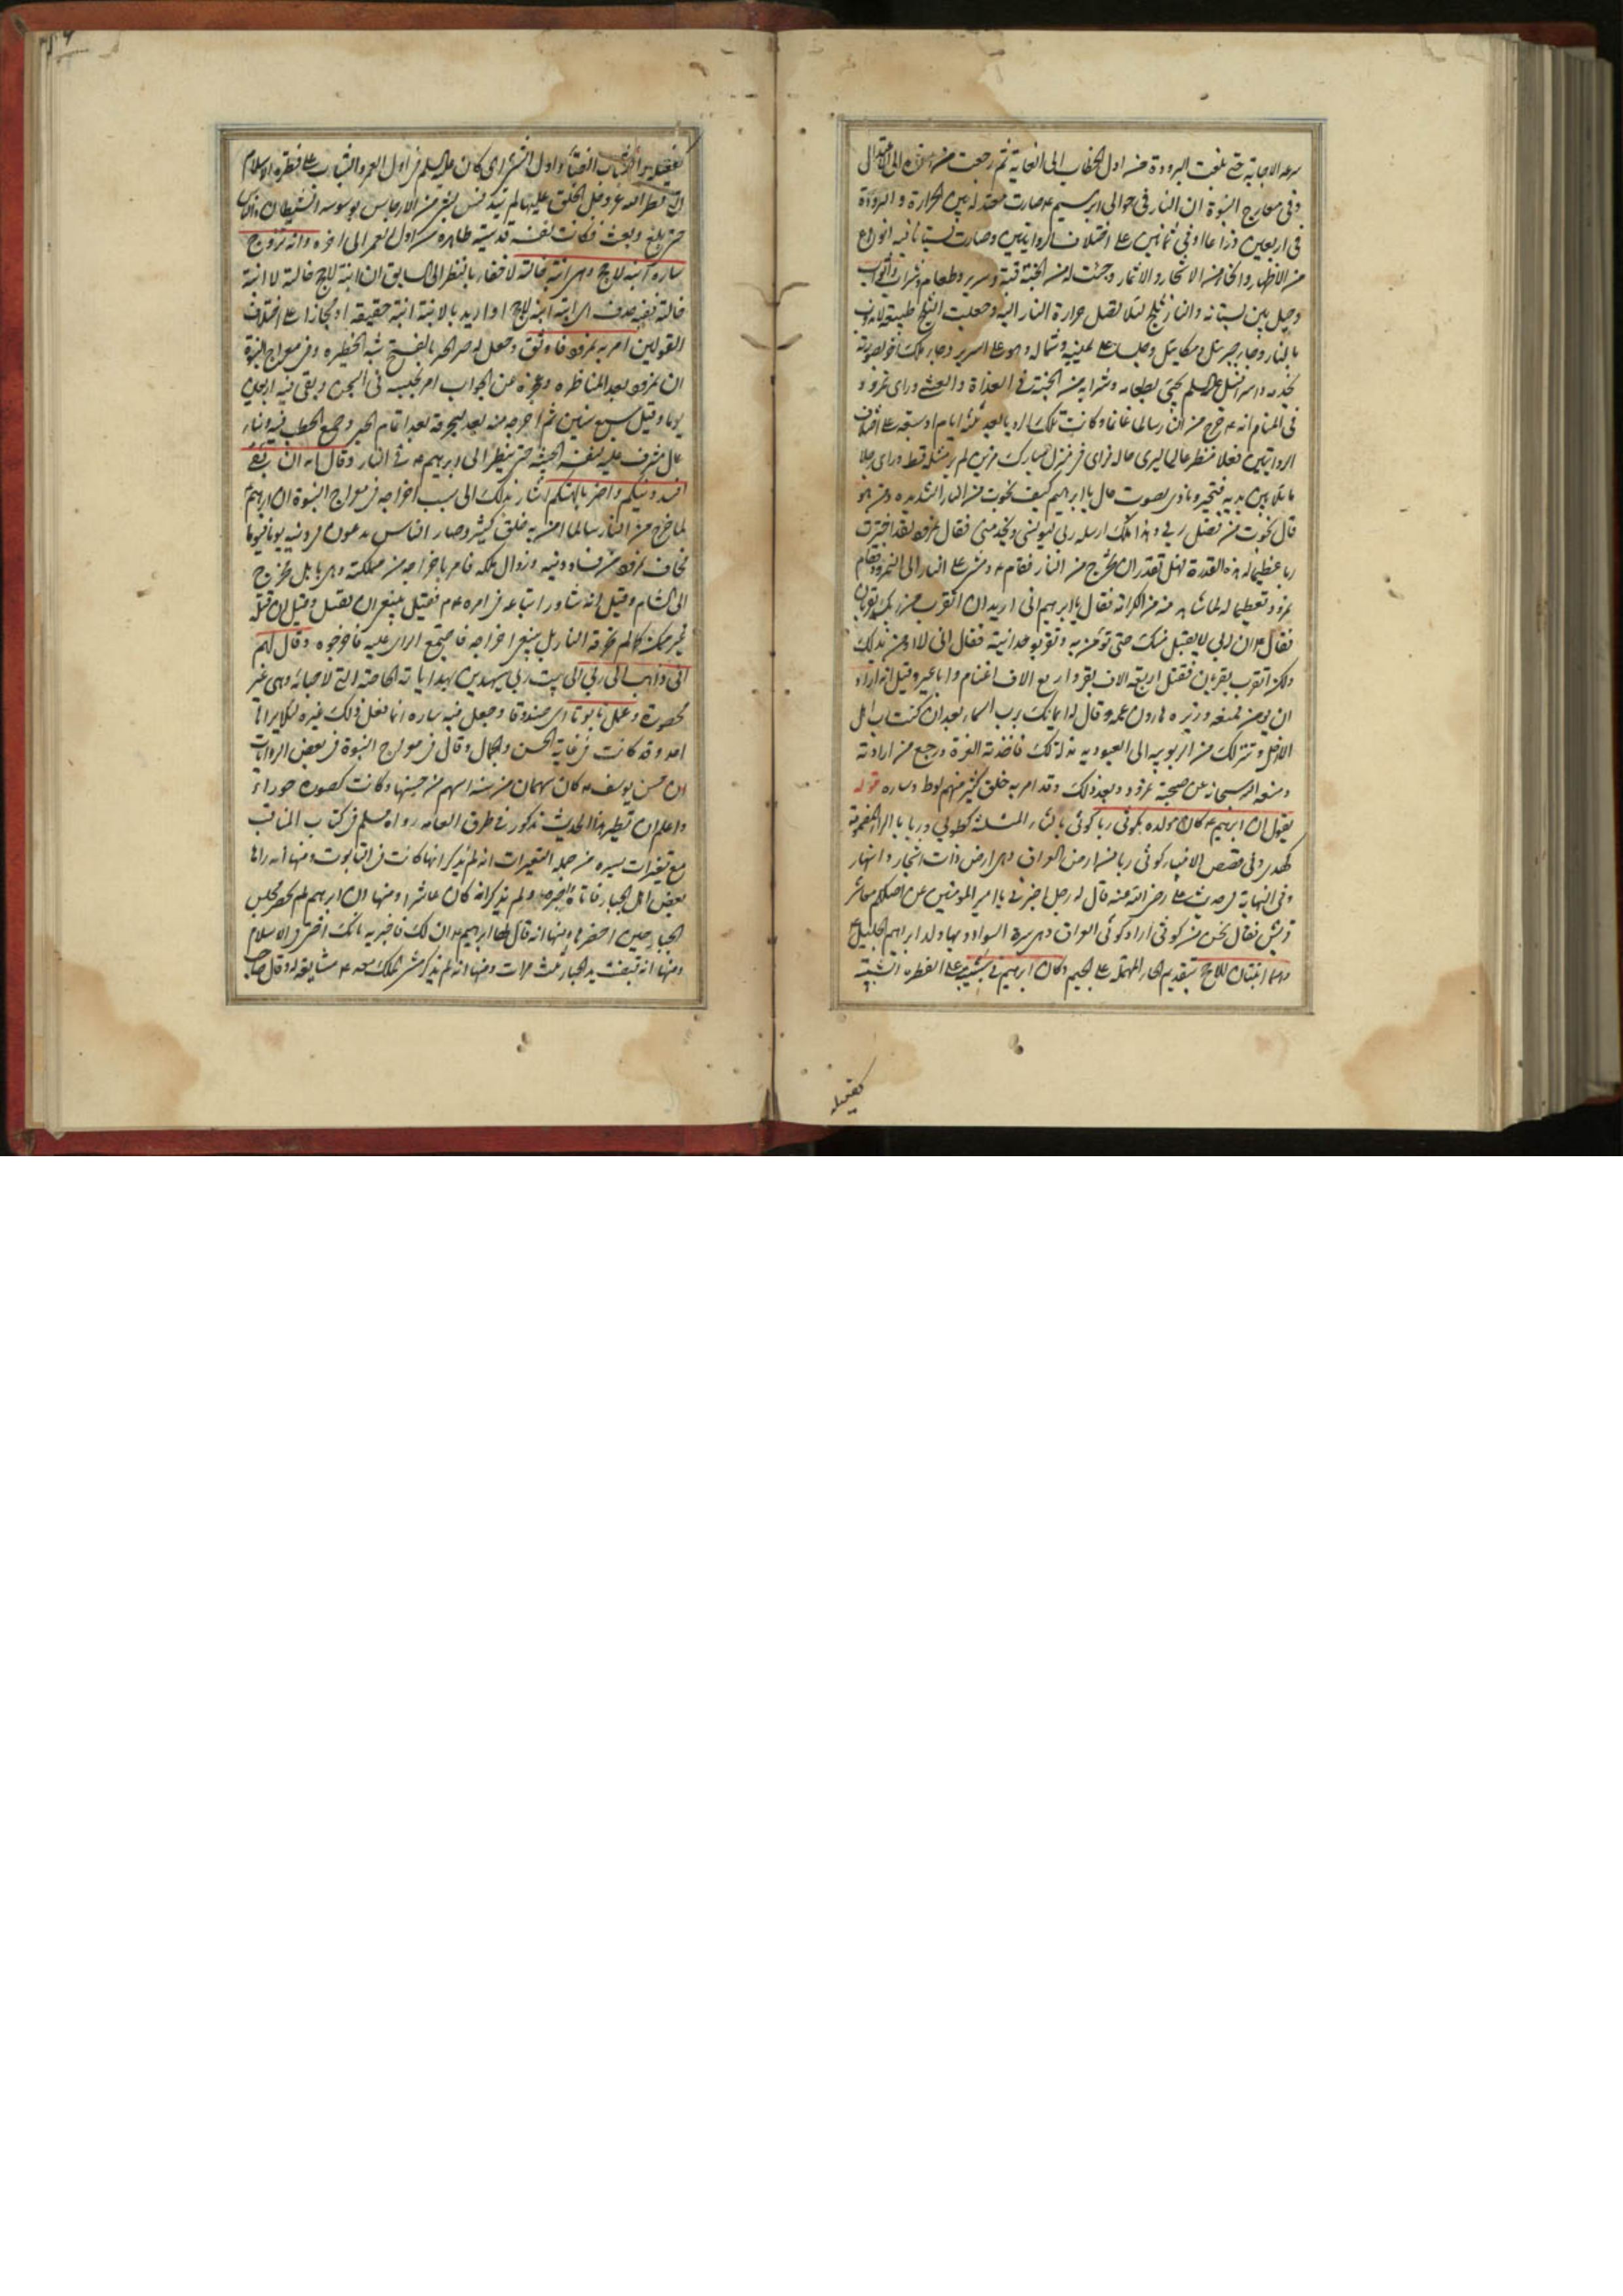 سرعة الاجابة حتى بلغت البرودة من اول الخطاب الى الغاية ثم رجعت من اخره الى الاعتدال
وفى معارج النبوة ان النار فى حوالى ابرهيم ع صارت معتدلة بين الحرارة والبرودة
فى اربعين ذراعا او فى ثمانين على اختلاف الروايتين وصارت بستانا فيه انواع
من الاظهار والخامس الاشجار والاثمار وجئت له من الجنة قبة وسرير وطعام وشراب واثواب
وجعل بين بستانه والنار ثلج لئلا تصل حرارة النار اليه وجعلت الثلج طبيعة لا يذوب
بالنار وجاء جبرئيل وميكائيل وجلسا على يمينه وشماله وهو على السرير وجاء ملك اخر بصورته
يخدمه واسرافيل عليه السلم يجئ بطعامه وشرابه من الجنة فى الغداة والعشى وراى نمرود
فى المنام انه ع خرج من النار سالما غانما وكانت تلك الرؤيا بعد ثلثة ايام او سبعة على اختلاف
الروايتين فعلا منظرا عاليا ليرى حاله فراى فى منزل مبارك مزين لم ير مثله قط وراى رجلا
ماثلا بين يديه فتحير ونادى بصوت عال يا ابرهيم كيف نجوت من النار الشديدة ومن هو
قال نجوت من فضل ربى وهذا ملك ارسله ربى ليونسنى ويخدمنى فقال نمرود لقد اخترت
ربا عظيما له هذه القدرة فهل تقدر ان تخرج من النار فقام ع ومشى على النار الى النمرود فقام
نمرود تعظيما له لما شاهد منه من الكرامة فقال يا ابرهيم انى اريد ان اتقرب من ربك بقربان
فقال ع ان ربى لا يقبل منك حتى تؤمن به وتقر بوحدانيته فقال انى لا اومن بذلك
ولكن اتقرب بقربان فقتل اربعة الاف بقر واربع الاف اغنام واباعير وقيل انه اراد
ان يومن فمنعه وزيره هارون عمه وقال له ايمانك برب السماء بعد ان كنت رب اهل
الارض وتنزلك من الربوبية الى العبودية مذلة لك فاخذته العزة ورجع من ارادته
ومنعه الله سبحانه من صحبة نمرود وبعد ذلك وقد امن به خلق كثير منهم لوط وساره قوله
يقول ان ابرهيم ع كان مولده بكوثى ربا كوثى بالثاء المثلثة كطوبى وربا بالراء المضمومة
كهدى وفى قصص الانبياء كوثى ربا من ارض العراق وهى ارض ذات اشجار وانهار
وفى النهاية فى حديث على رضى الله عنه قال له رجل اخبرنى يا امير المؤمنين عن اصلكم معاشر
قريش فقال نحن من كوثى اراد كوثى العراق وهى سرة السواد وبها ولد ابراهيم الخليل ع
وهما ابنتان للاحج بتقديم الحاء المهملة على الجيم وكان ابرهيم فى شبيبته على الفطرة الشبيبة
كفعيلة
الشباب ايضا واول النشو اى كان عليه السلم فى اول العمر والشباب على فطرة الاسلام
التى فطر الله عز وجل الخلق عليها لم تتدنس بشئ من الارجاس بوسوسة الشيطان
حتى بلغ وبعث فكانت نفسه قدسية طاهرة من اول العمر الى اخره وانه تزوج
ساره ابنة لاحج وهى ابنة خالته لا خفاء بالنظر الى السابق ان ابنة لاحج خالته لا ابنة
خالته ففيه حذف اى ابنة ابنة لاحج او اريد بالابنة ابنة حقيقة او مجازا على اختلاف
القولين امر به نمرود فاوثق وجعل له حير الحير بالفتح شبه الحظيرة وفى معراج النبوة
ان نمرود بعد المناظرة وعجزه عن الجواب امر بحبسه فى السجن وبقى فيه اربعين
يوما وقيل سبع سنين ثم اخرجه منه بعد ليحرقه بعد اتمام الحير وجمع الحطب فيه وبناء
عال مشرف عليه لنفسه الخبيثة حتى ينظر الى ابرهيم ع فى النار وقال انه ان بقى
افسد دينكم واضر بالهتكم اشار بذلك الى سبب اخراجه فى معراج النبوة ان ابرهيم
لما خرج من النار سالما امن به خلق كثير وصار الناس يدعون فى دينه يوما فيوما
فخاف نمرود من فساد دينه وزوال ملكه فامر باخراجه من مملكته وهى بابل فخرج
الى الشام وقيل انه شاور اتباعه فى امره ع فقيل ينبغى ان يقتل وقيل ان قتله
غير ممكن كما لم تحرقه النار بل ينبغى اخراجه فاجتمع الراى عليه فاخرجوه وقال لهم
انى ذاهب الى ربى الى بيت ربى سيهدين بهداياته الخاصة التى لاحبائه وهى غير
محصورة وعمل تابوتا اى صندوقا وجعل فيه ساره انما فعل ذلك غيرة لئلا يراها
احد وقد كانت فى غاية الحسن والجمال وقال فى معراج النبوة فى بعض الروايات
ان حسن يوسف ع كان سهمان من ستة اسهم من حسنها وكانت كصورة حوراء
واعلم ان نظير هذا الحديث مذكور فى طرق العامة رواه مسلم فى كتاب المناقب
مع تغيرات يسيرة من جملة التغيرات انه لم يذكر انها كانت فى التابوت ومنها انه راها
بعض اهل الجبار فاتاه واخبره ولم يذكر انه كان عاشرا ومنها ان ابرهيم لم يحضر مجلس
الجبار حين احضرها ومنها انه قال لها ابراهيم ع ان لك فاخبريه بانك اختى فى الاسلام
ومنها انه قبضت يد الجبار ثلث مرات ومنها انه لم يذكر مشى الملك معه ع مشايعة له وقال صاحب